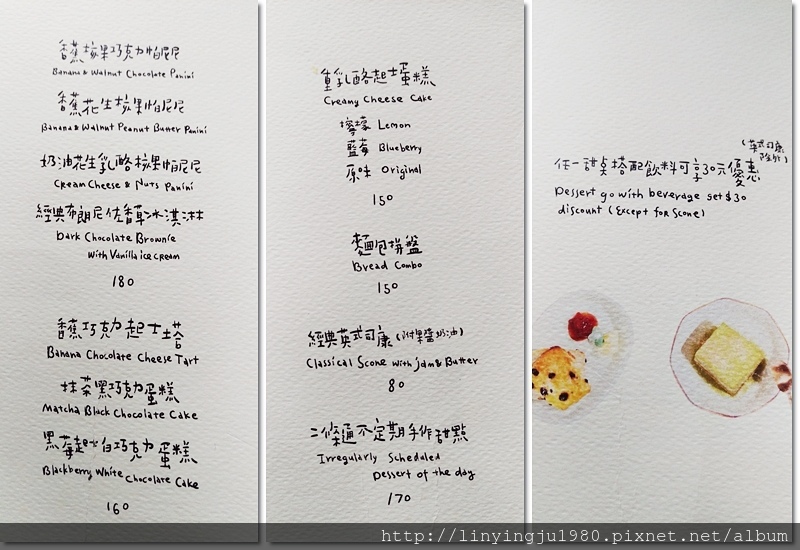 香蕉核果巧克力帕尼尼
Banana & Walnut Chocolate Panini
香蕉花生核果帕尼尼
Banana & Walnut Peanut Butter Panini
奶油花生乳酪核果帕尼尼
Cream Cheese & Nuts Panini
經典布朗尼佐香草冰淇淋
Dark Chocolate Brownie
with Vanilla ice cream
180
香蕉巧克力起士塔
Banana Chocolate Cheese Tart
抹茶黑巧克力蛋糕
Matcha Black Chocolate Cake
黑莓起士白巧克力蛋糕
Blackberry White Chocolate Cake
160
重乳酪起士蛋糕
Creamy Cheese Cake
檸檬 Lemon
藍莓 Blueberry
原味 Original
150
麵包拼盤
Bread Combo
150
經典英式司康(附果醬奶油)
Classical Scone with jam & Butter
80
二條通不定期手作甜點
Irregularly Scheduled
Dessert of the day
170
(英式司康
除外)
任一甜點搭配飲料可享30元優惠
Dessert go with beverage set $30
discount (Except for Scone)
http://linyingju1980.pixnet.net/album